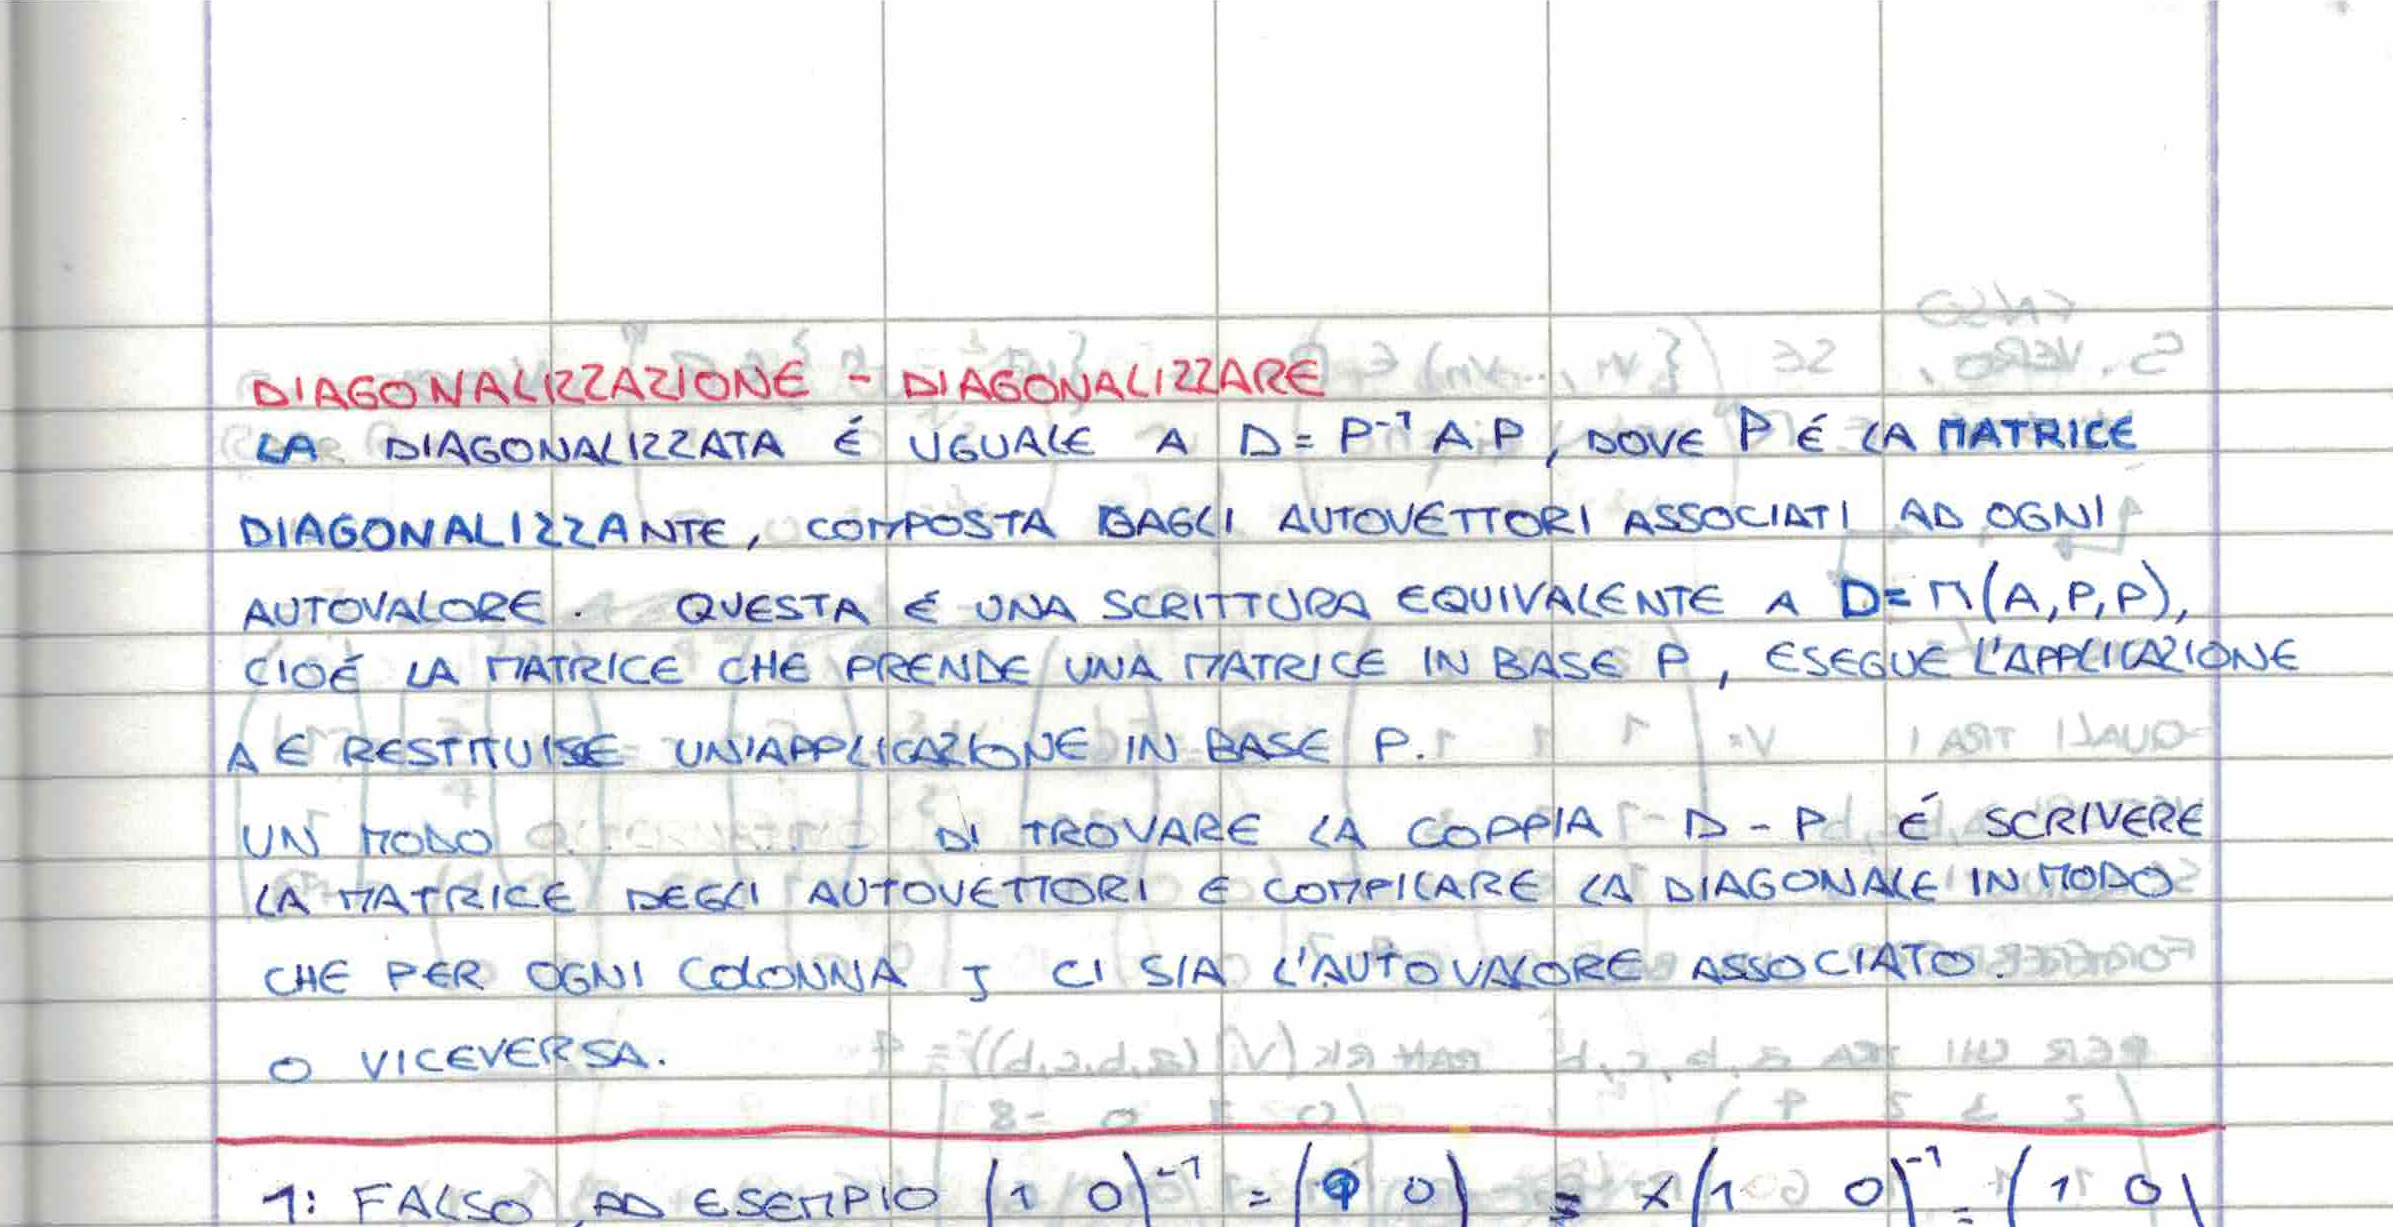 DIAGONALIZZAZIONE - DIAGONALIZZARE
LA DIAGONALIZZATA É UGUALE A D = P⁻¹ A P, DOVE P É LA MATRICE
DIAGONALIZZANTE, COMPOSTA DAGLI AUTOVETTORI ASSOCIATI AD OGNI
AUTOVALORE. QUESTA É UNA SCRITTURA EQUIVALENTE A D = M(A,P,P),
CIOÉ LA MATRICE CHE PRENDE UNA MATRICE IN BASE P, ESEGUE L'APPLICAZIONE
A E RESTITUISE UN'APPLICAZIONE IN BASE P.
UN MODO DI TROVARE LA COPPIA D - P É SCRIVERE
LA MATRICE DEGLI AUTOVETTORI E COMPILARE LA DIAGONALE IN MODO
CHE PER OGNI COLONNA J CI SIA L'AUTOVALORE ASSOCIATO.
O VICEVERSA.
1: FALSO, AD ESEMPIO (1 0)⁻¹ = ( 0) = (1 0)⁻¹ = (1 0)